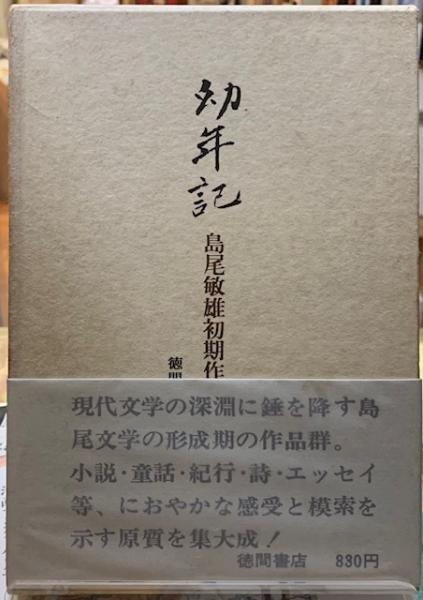 幼年記
島尾敏雄初期作
徳間
現代文学の深淵に錘を降す島
尾文学の形成期の作品群。
小説・童話・紀行・詩・エッセイ
等、におやかな感受と模索を
示す原質を集大成!
徳間書店 830円